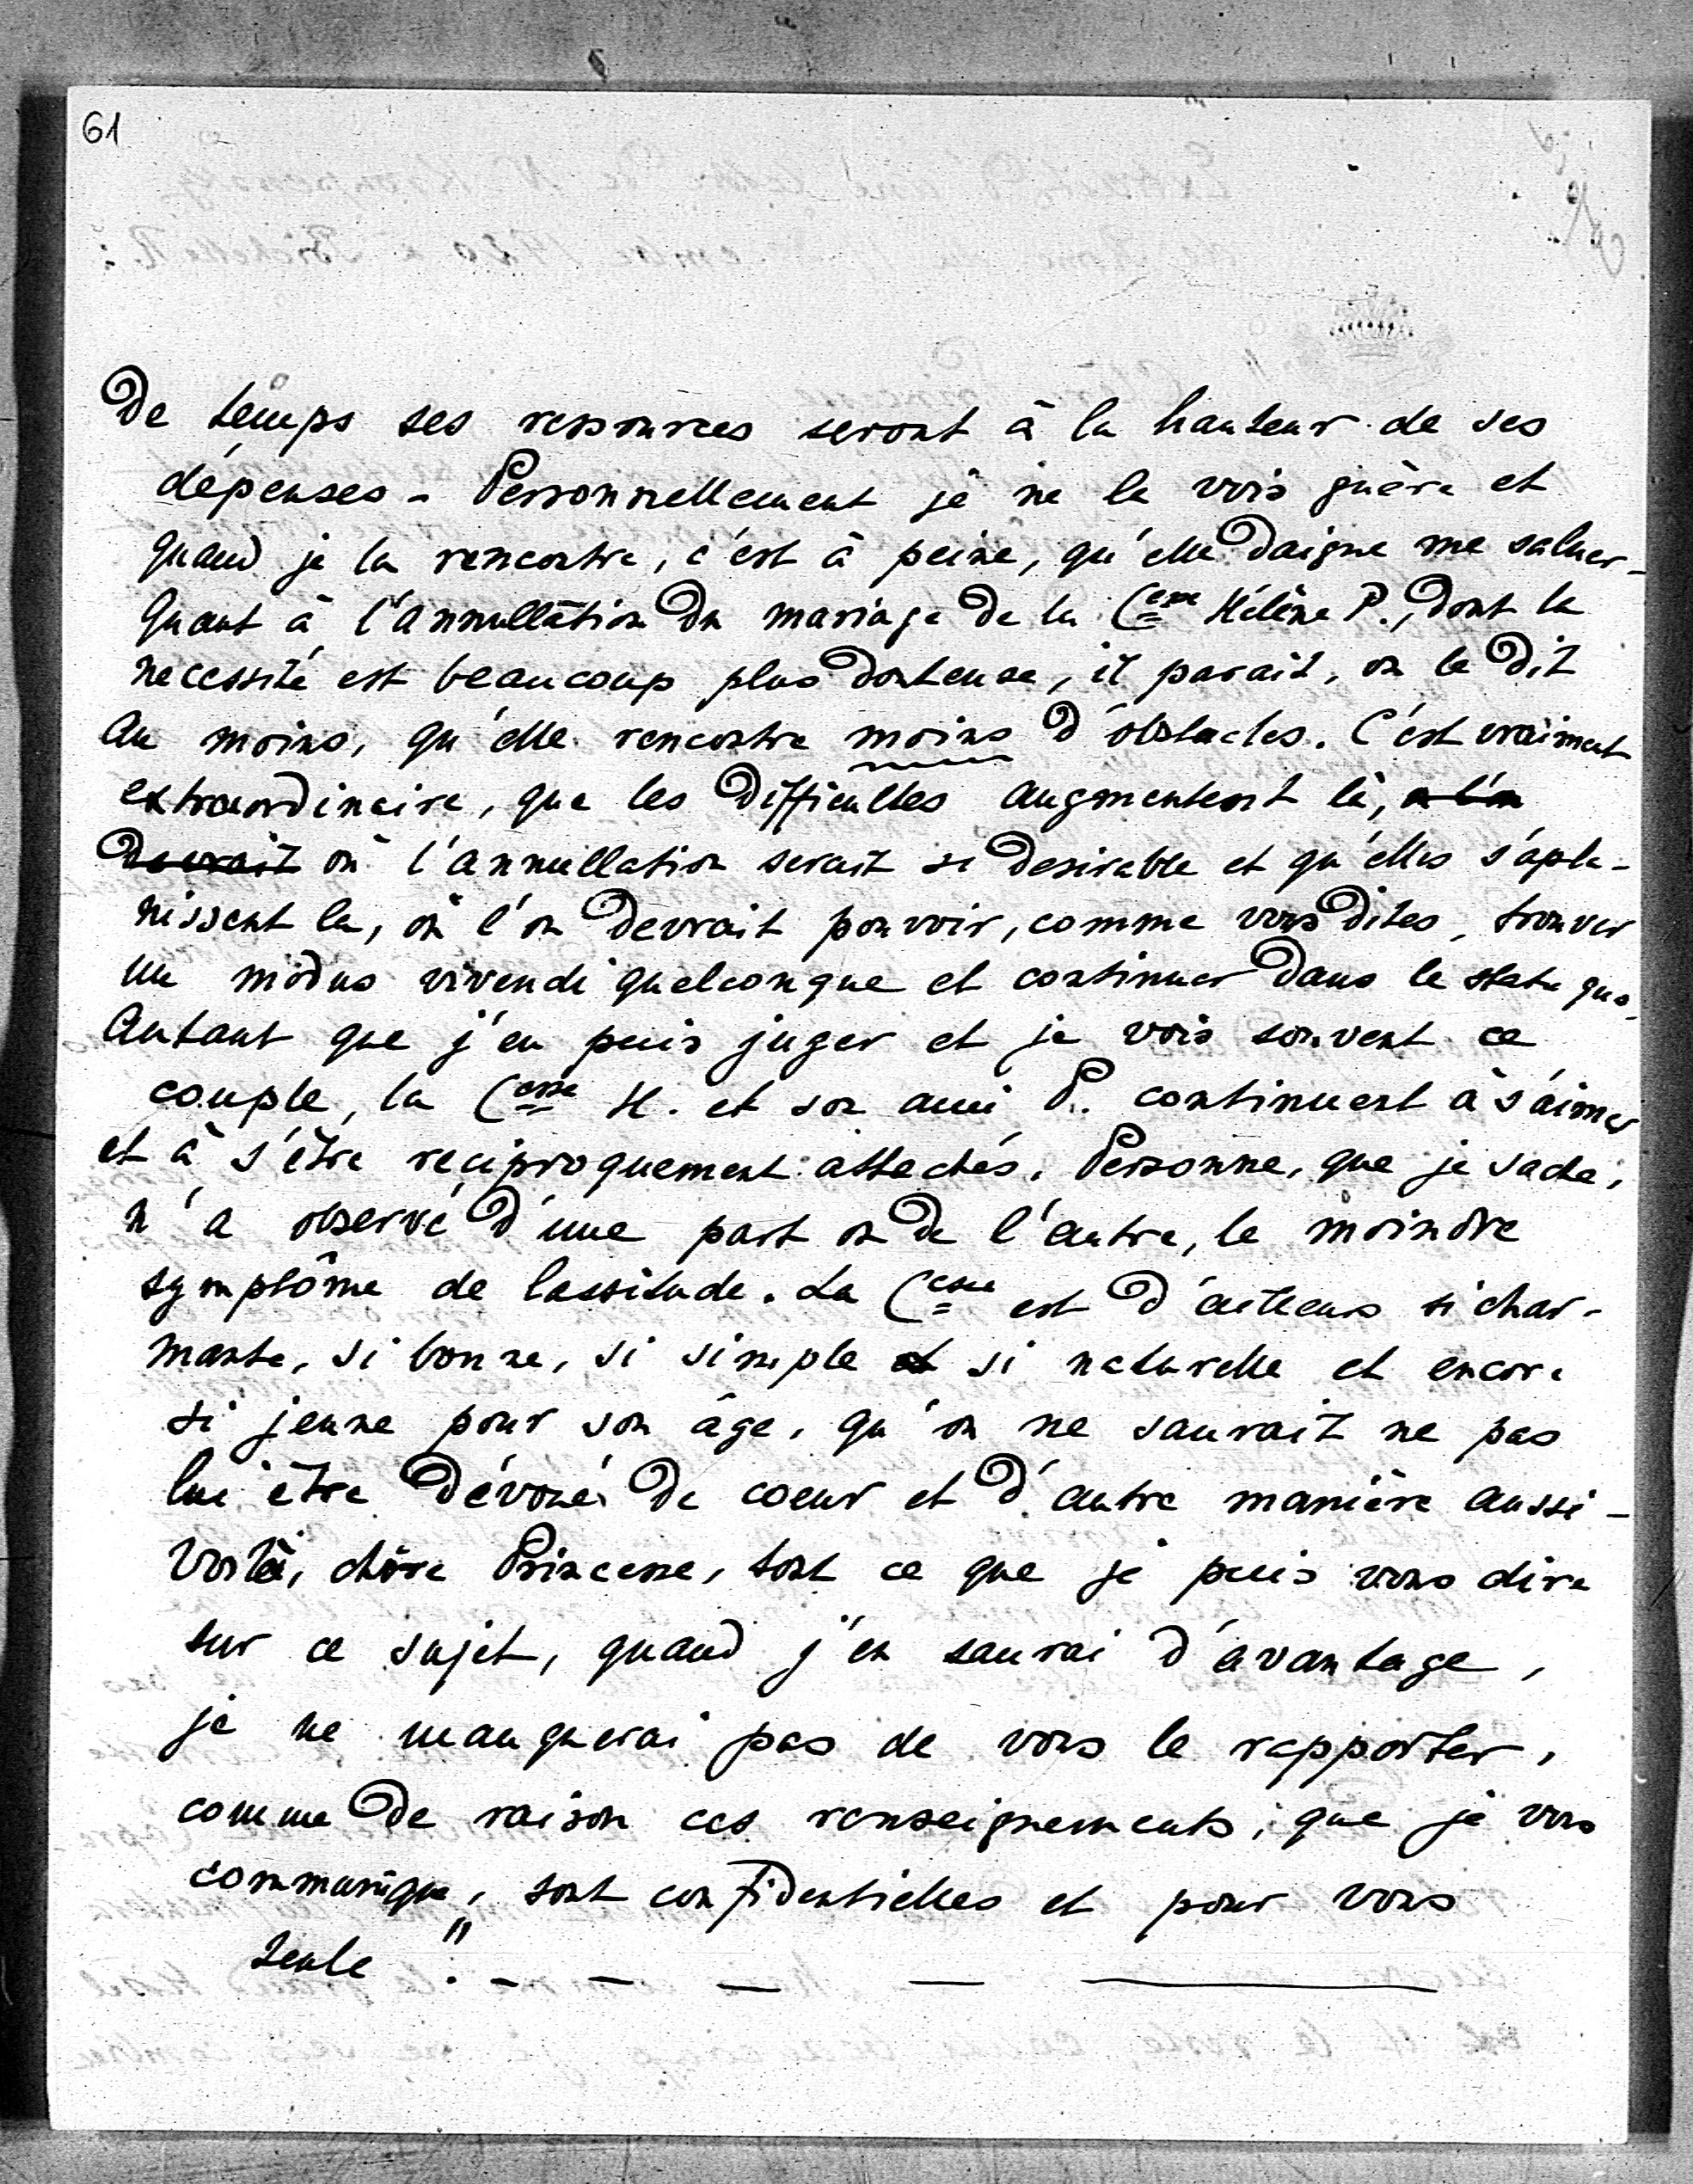 61
De temps ses ressources seront à la hauteur de ses
dépenses - Personnellement je ne la vois guère et
quand je la rencontre, c'est à peine, qu'elle daigne me saluer -
Quant à l'annullation du mariage de la Csse Hélène P., dont la
necessité est beaucoup plus douteuse, il parait, on le dit
au moins, qu'elle rencontre moins d'obstacles. C'est vraiment
extraordinaire, que les difficultes augmentent là, ou l'on
devrait où l'annullation serait si desirable et qu'elles s'apla-
nissent la, où l'on devrait pouvoir, comme vous dites, trouver
un modus vivendi quelconque et continuer dans le statu quo.
Autant que j'en puis juger et je vois souvent ce
couple, la Csse H. et son ami P. continuent à s'aimer
et à s'être reciproquement attachés. Personne, que je sache,
n'a observé d'une part ou de l'autre, le moindre
symptôme de lassitude. La Csse est d'ailleurs si char-
mante, si bonne, si simple et si naturelle et encore
si jeune pour son âge, qu'on ne saurait ne pas
lui être dévoué de coeur et d'autre manière aussi -
Voilà, chère Princesse, tout ce que je puis vous dire
sur ce sujet, quand j'en saurai d'avantage,
je ne manquerai pas de vous le rapporter,
comme de raison ces renseignements, que je vous
communique, sont confidentielles et pour vous
seule".